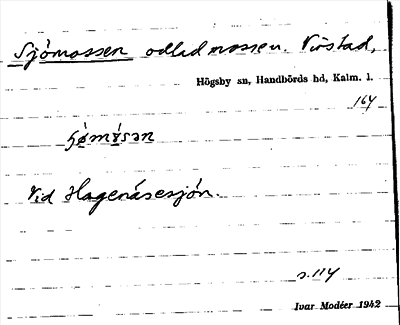 Sjömossen odlad mossen. Virstad,
Högsby sn, Handbörds hd, Kalm. l.
164
Vid Hagenäsesjön.
s. 114
Ivar Modéer 1942